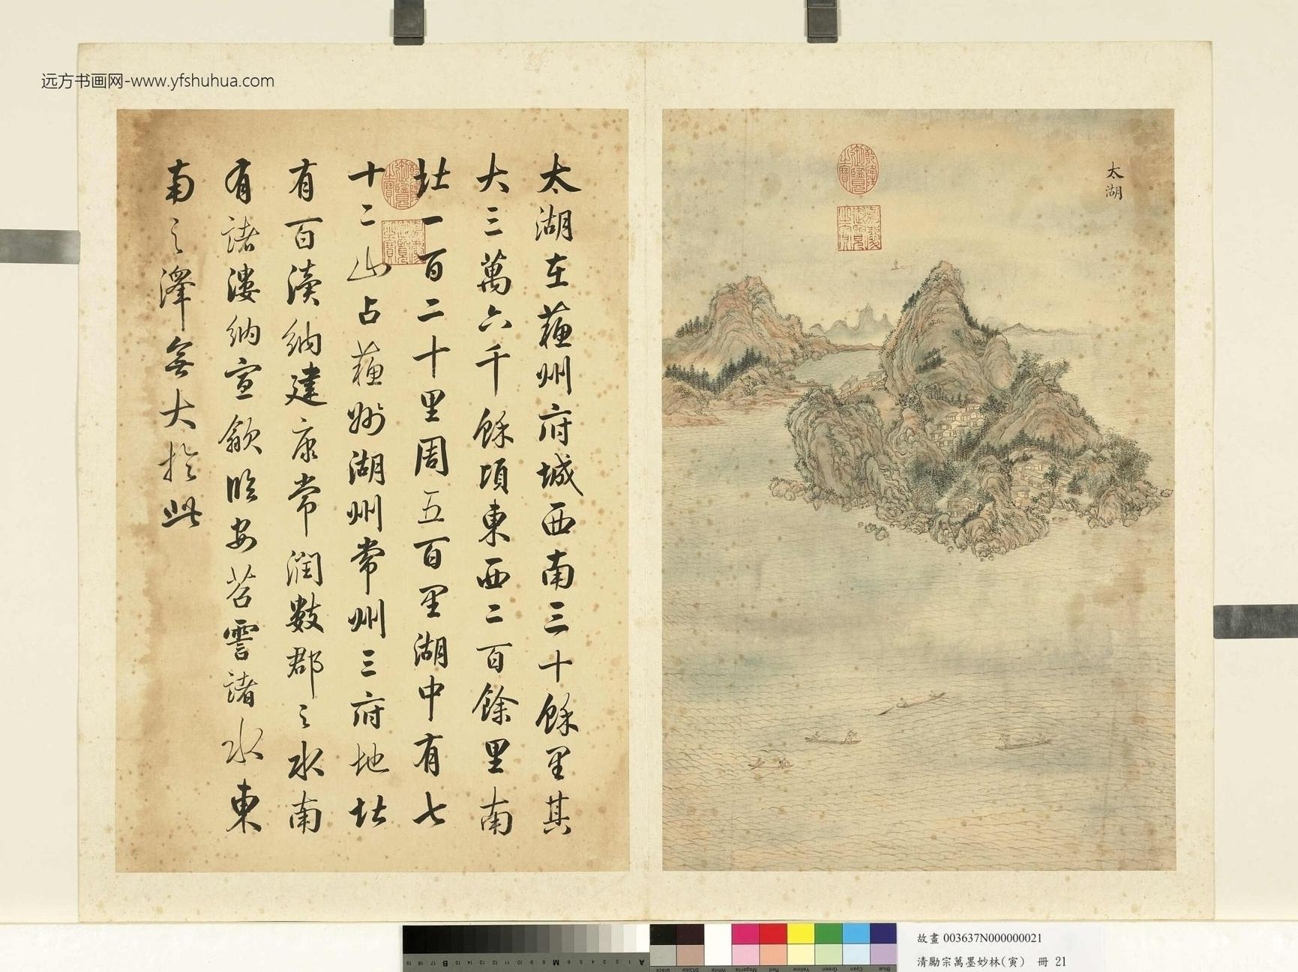 远方书画网-www.yfshuhua.com
太湖
太湖在蘓州府城西南三十餘里其
大三萬六千餘頃東西二百餘里南
北一百二十里周五百里湖中有七
十二山占蘓州湖州常州三府地北
有百瀆納建康常潤數郡之水南
有諸漊納宣歙臨安苕霅諸水東
南之澤無大於此
故畫 003637N000000021
清勵宗萬墨妙林(寅) 冊 21